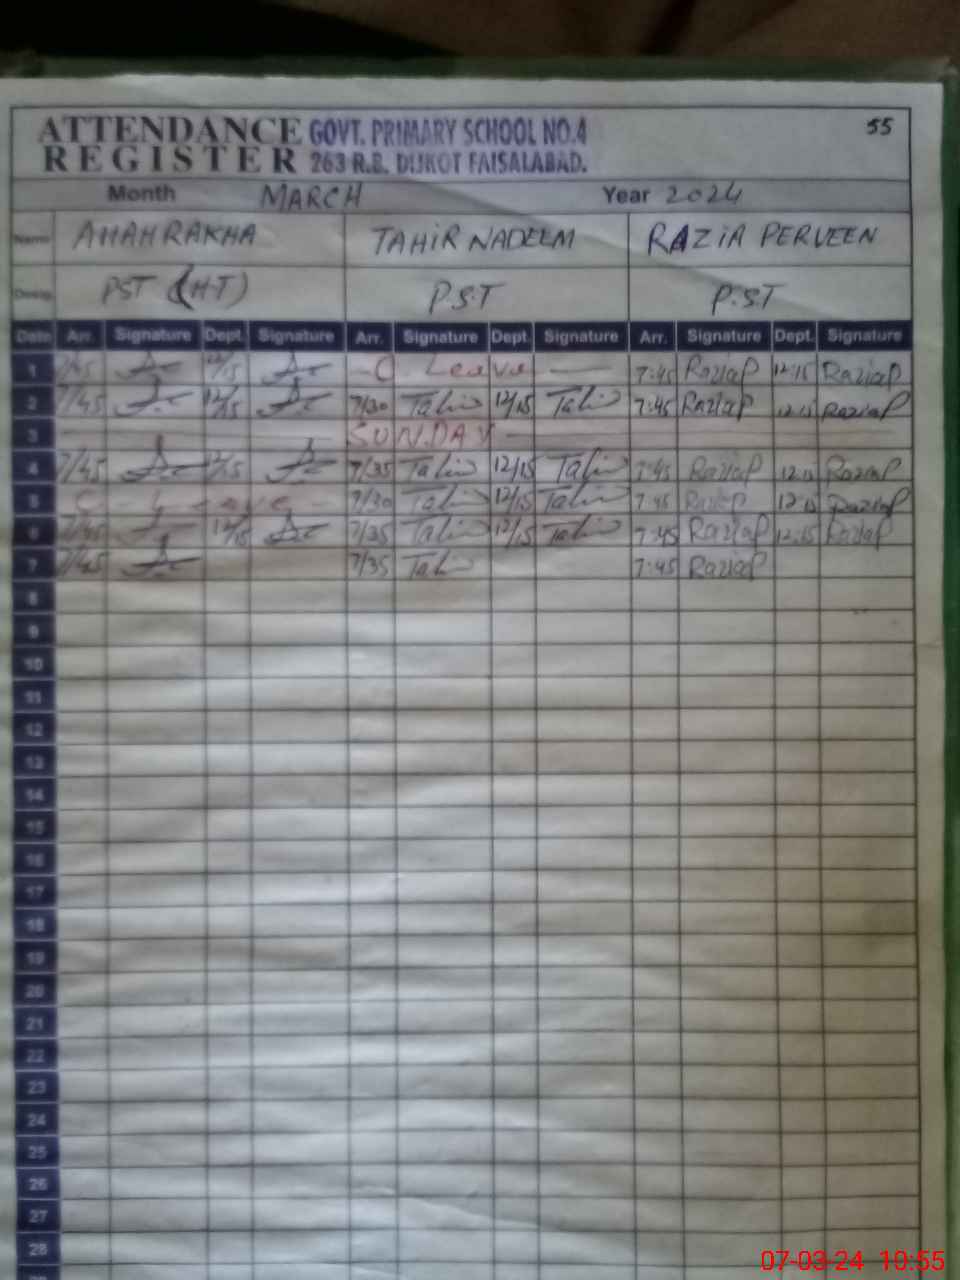 ATTENDANCE GOVT. PRIMARY SCHOOL NO.4 55
REGISTER 263 R.B. DIJKOT FAISALABAD.
Month MARCH Year 2024
Name AHAHRAKHA TAHIR NADEEM RAZIA PERVEEN
Desig. PST (H-T) P.S.T P.S.T
Date Arr. Signature Dept. Signature Arr. Signature Dept. Signature Arr. Signature Dept. Signature
1 7/45 12/15 C. Leave 7:45 RaziaP 12:15 RaziaP
2 7/45 12/15 7/30 Tahir 12/15 Tahir 7:45 RaziaP 12:15 RaziaP
3 SUNDAY
4 7/45 12/15 7/35 Tahir 12/15 Tahir 7:45 RaziaP 12:15 RaziaP
5 C - Leave - 7/30 Tahir 12/15 Tahir 7:45 RaziaP 12:15 RaziaP
6 7/45 12/15 7/35 Tahir 12/15 Tahir 7:45 RaziaP 12:15 RaziaP
7 7/45 7/35 Tahir 7:45 RaziaP
8
9
10
11
12
13
14
15
16
17
18
19
20
21
22
23
24
25
26
27
28
07-03-24 10:55